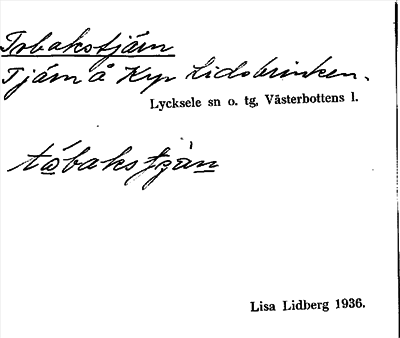 Tobakstjärn
Tjärn å Krp Lidobrinken.
Lycksele sn o. tg, Västerbottens l.
tåbakstjạ̈n
Lisa Lidberg 1936.